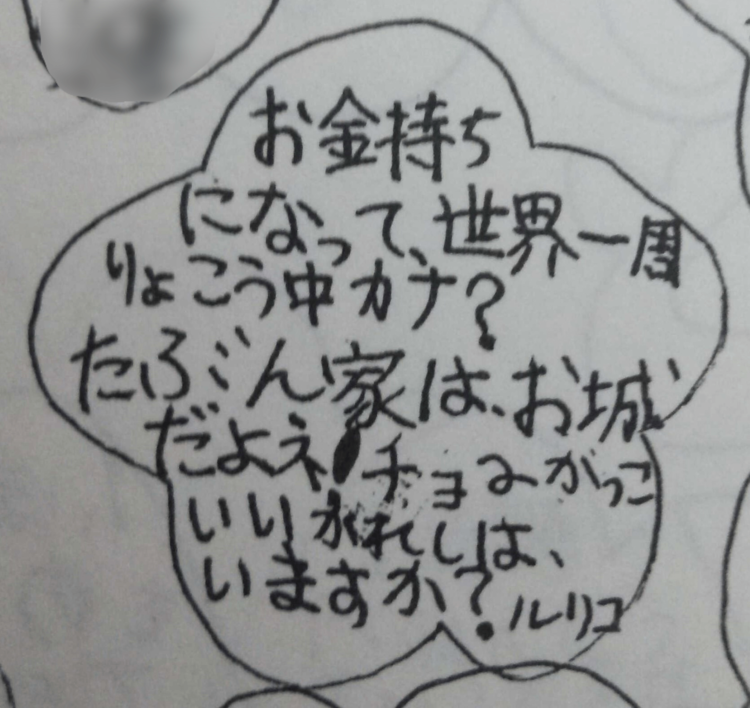 お金持ち
になって、世界一周
りょこう中カナ?
たぶん家は、お城
だよネ!チョーかっこ
いいかれしは、
いますか?ルリコ